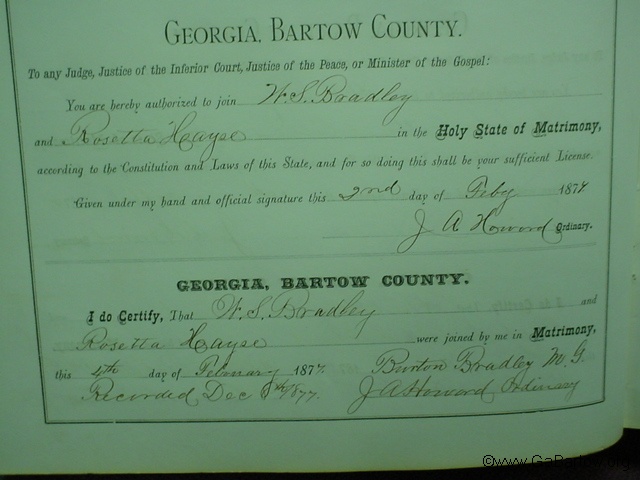 GEORGIA, BARTOW COUNTY.
To any Judge, Justice of the Inferior Court, Justice of the Peace, or Minister of the Gospel:
You are hereby authorized to join W. S. Bradley
and Rosetta Hayse in the Holy State of Matrimony,
according to the Constitution and Laws of this State, and for so doing this shall be your sufficient License.
Given under my hand and official signature this 2nd day of Feby 1877
J A Howard Ordinary.
GEORGIA, BARTOW COUNTY.
I do Certify, That W. S. Bradley and
Rosetta Hayse were joined by me in Matrimony,
this 4th day of February 1877 Burton Bradley M. G.
Recorded Dec 1877. J A Howard Ordinary
©www.GaP